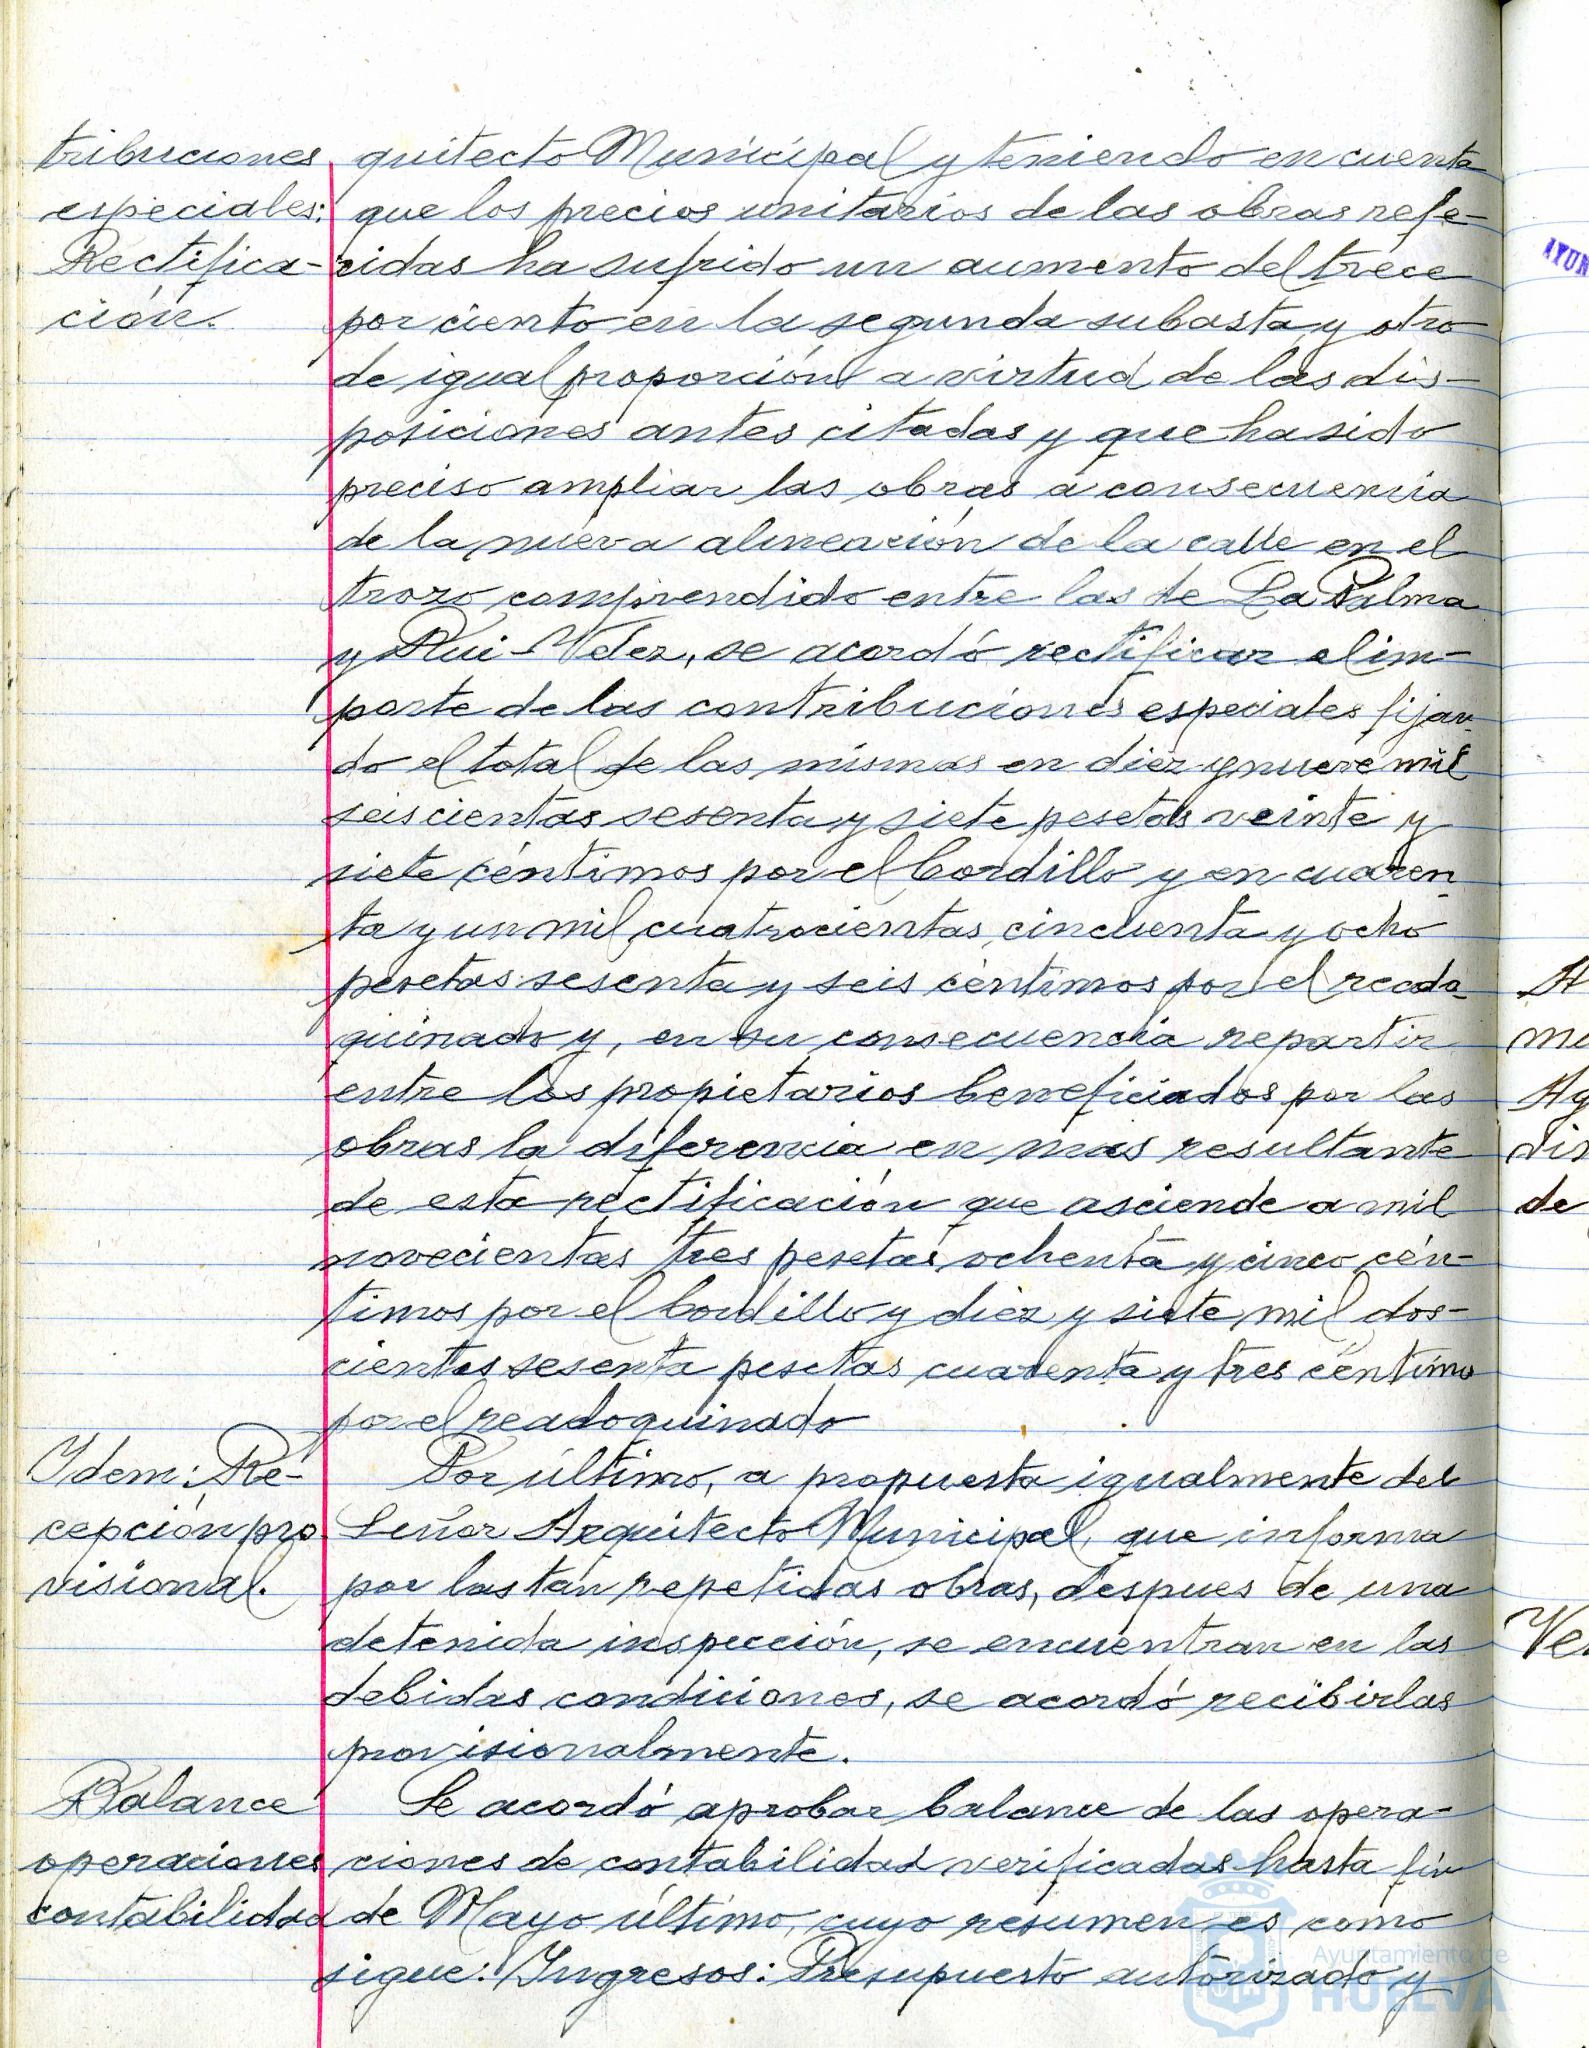 tribuciones
especiales:
Rectifica-
ción.
quitecto Municipal y teniendo en cuenta
que los precios unitarios de las obras refe-
ridas ha sufrido un aumento del trece
por ciento en la segunda subasta y otro
de igual proporción a virtud de las dis-
posiciones antes citadas y que ha sido
preciso ampliar las obras a consecuencia
de la nueva alineación de la calle en el
trozo comprendido entre las de La Palma
y Rui-Velez, se acordó rectificar el im-
porte de las contribuciones especiales fijan-
do el total de las mismas en diez y nueve mil
seiscientas sesenta y siete pesetas veinte y
siete céntimos por el bordillo y en cuaren-
ta y un mil cuatrocientas cincuenta y ocho
pesetas sesenta y seis céntimos por el reado-
quinado y, en su consecuencia repartir
entre los propietarios beneficiados por las
obras la diferencia en mas resultante
de esta rectificación que asciende a mil
novecientas tres pesetas ochenta y cinco cén-
timos por el bordillo y diez y siete mil dos-
cientas sesenta pesetas cuarenta y tres céntimo
por el readoquinado
Idem: Re-
cepción pro
visional.
Por último, a propuesta igualmente del
Señor Arquitecto Municipal, que informa
por las tan repetidas obras, despues de una
detenida inspección, se encuentran en las
debidas condiciones, se acordó recibirlas
provisionalmente.
Balance
operaciones
contabilidad
Se acordó aprobar balance de las opera-
ciones de contabilidad verificadas hasta fin
de Mayo último, cuyo resumen es como
sigue: Ingresos: Presupuesto autorizado y
Ayuntamiento de
HUELVA
AYUN
A
mu
Ag
din
de
Ve